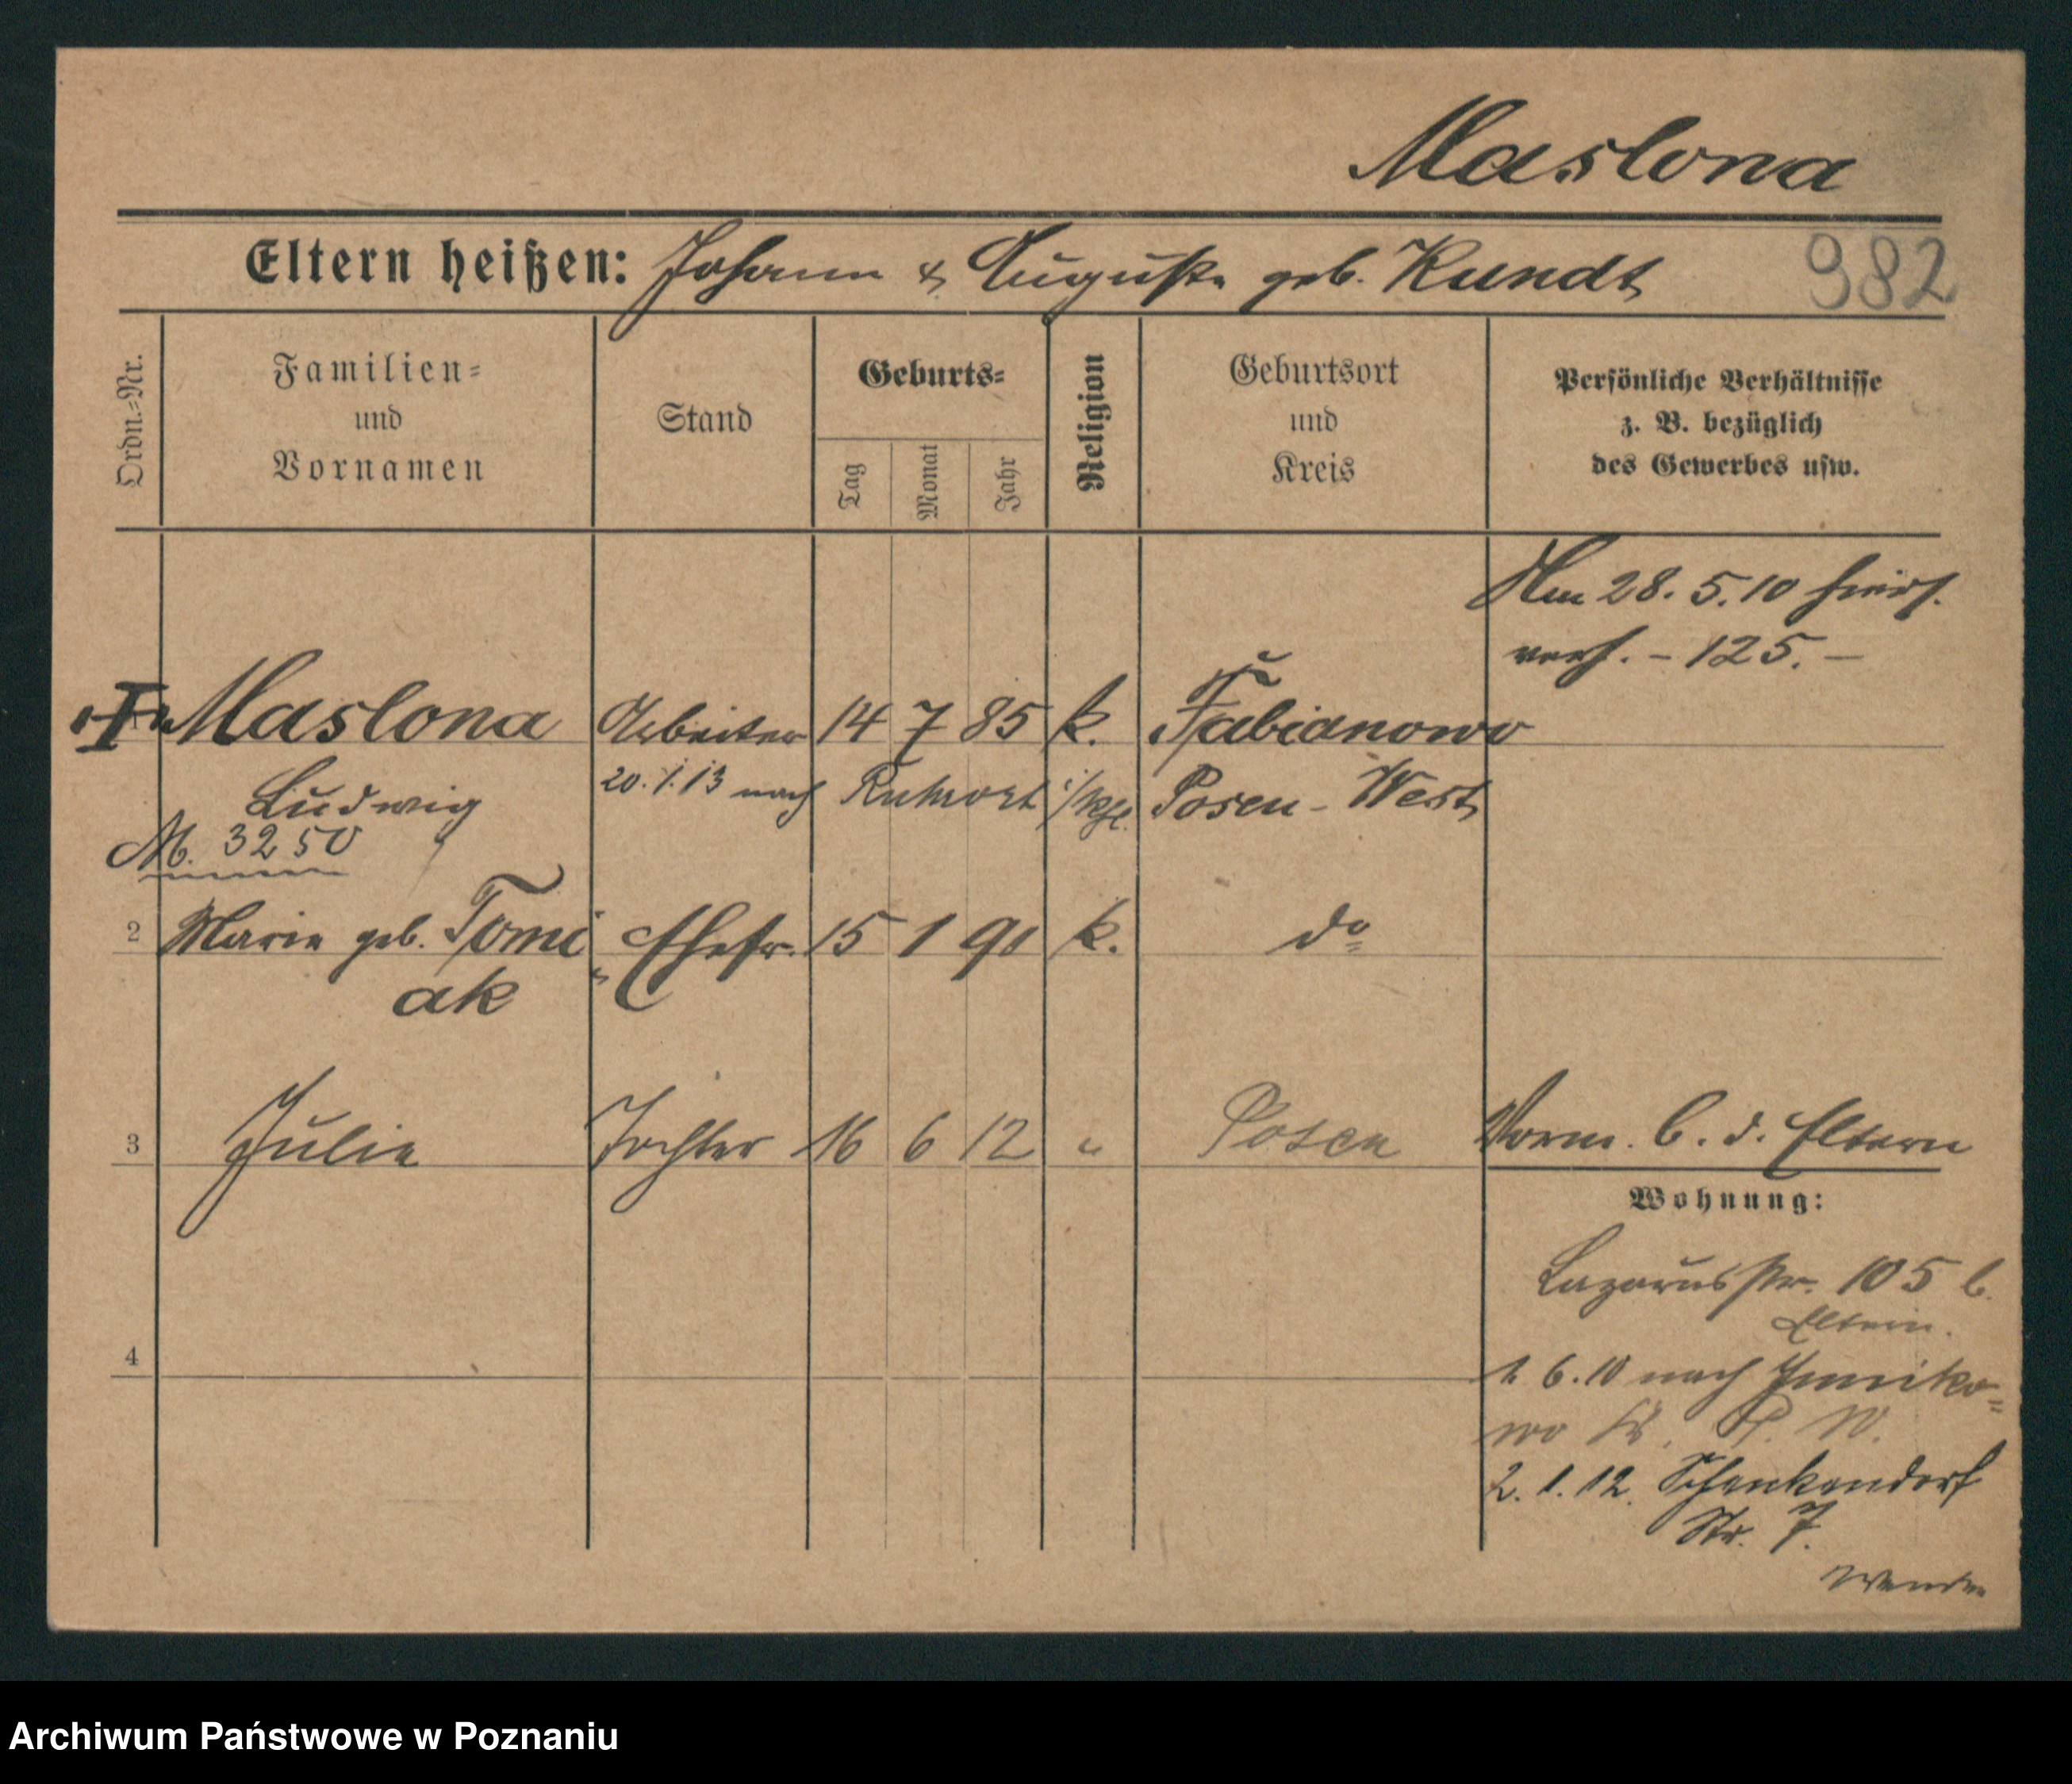 Maslona
Eltern heißen: Johann & Auguste geb. Kundt
982
Ordn.=Nr.
Familien=
und
Vornamen
Stand
Geburts=
Tag
Monat
Jahr
Religion
Geburtsort
und
Kreis
Persönliche Verhältnisse
z. B. bezüglich
des Gewerbes usw.
Am 28. 5. 10 hier
verh. - 125. -
Maslona Arbeiter 14 7 85 k. Fabianowo
Ludwig 20. 1. 13 nach Ruhrort Posen-West
M. 3250
2 Marie geb. Tomi Ehefr. 15 1 91 k. do
ak
3 Julie Tochter 16 6 12 " Posen Vorm. b. d. Eltern
Wohnung:
Lazarusstr. 105 b.
Eltern.
4
1. 6. 10 nach Junniko=
wo Kr. P. W.
2. 1. 12. Schenkendorf
Str. 7.
Wenden
Archiwum Państwowe w Poznaniu